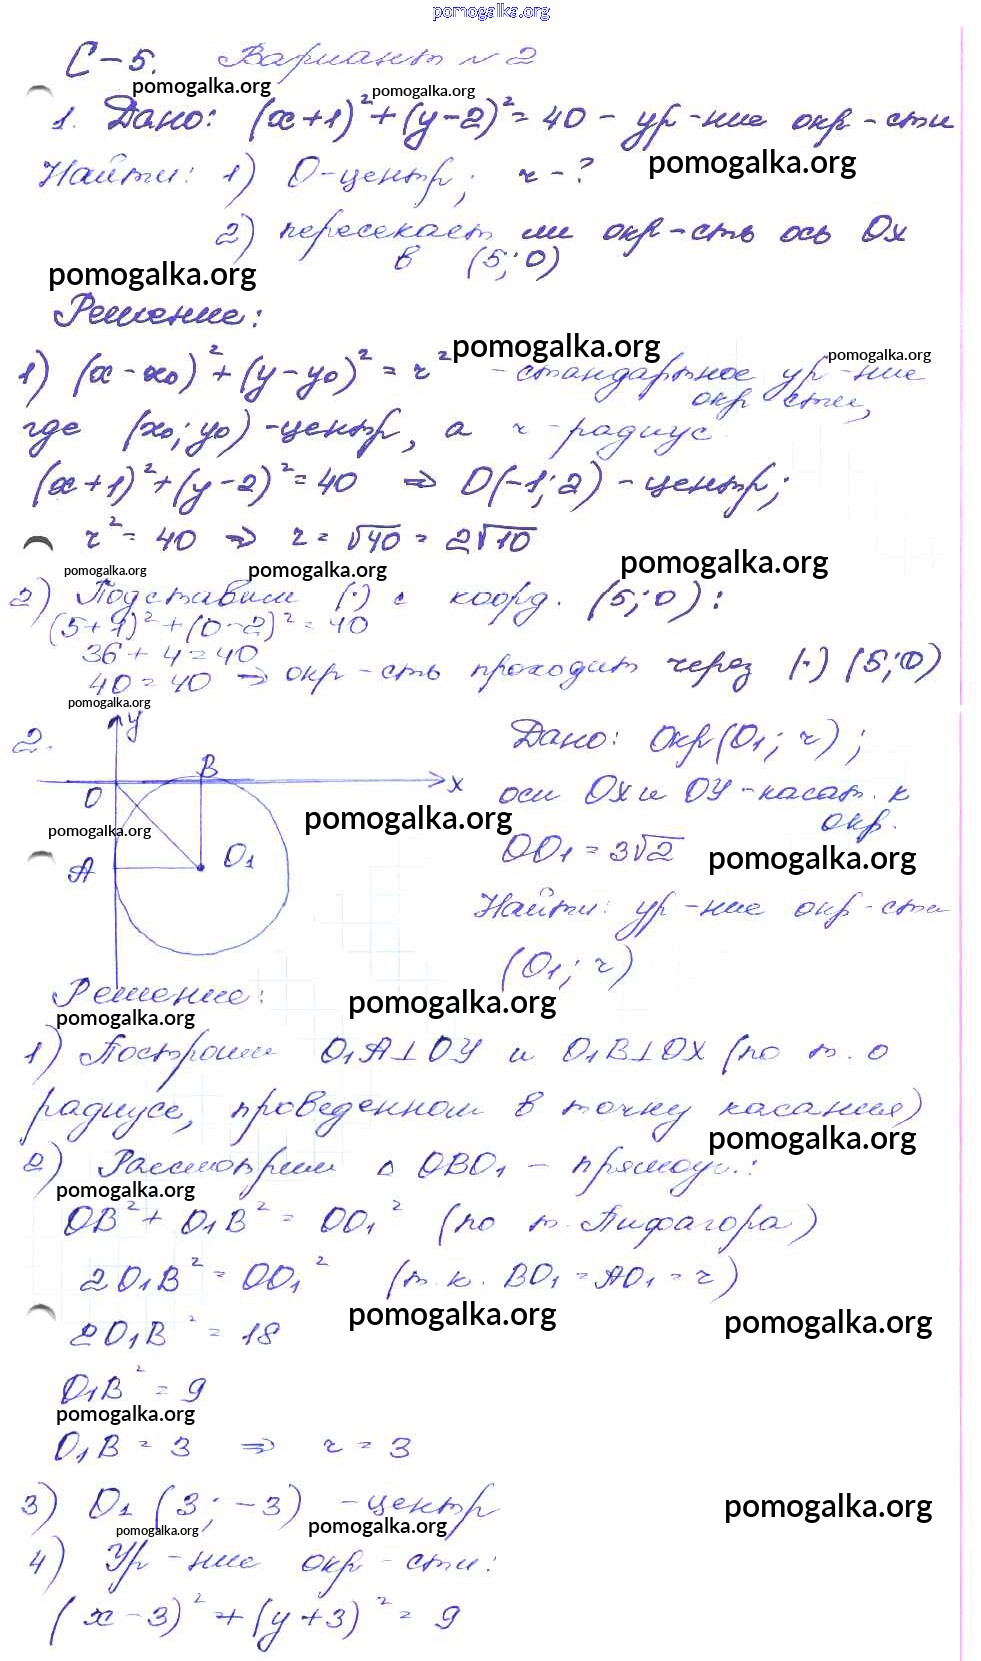 pomogalka.org
С-5. Вариант №2
pomogalka.org pomogalka.org
1. Дано: (x+1)²+(y-2)²=40 - ур-ние окр-сти
pomogalka.org
Найти: 1) O-центр; r-?
2) пересекает ли окр-сть ось Ox
в (5;0)
pomogalka.org
Решение:
pomogalka.org pomogalka.org
1) (x-x₀)²+(y-y₀)²=r² - стандартное ур-ние
окр сти,
где (x₀;y₀)-центр, а r-радиус
(x+1)²+(y-2)²=40 ⇒ O(-1;2)-центр;
r²=40 ⇒ r=√40=2√10
pomogalka.org pomogalka.org pomogalka.org
2) Подставим (·) с коорд. (5;0):
(5+1)²+(0-2)²=40
36+4=40
40=40 ⇒ окр-сть проходит через (·) (5;0)
pomogalka.org
2. y Дано: Окр(O₁;r);
B
O x оси OX и OY-касат. к
окр.
pomogalka.org pomogalka.org
A O₁ OO₁=3√2
pomogalka.org
Найти: ур-ние окр-сти
(O₁;r)
Решение:
pomogalka.org pomogalka.org
1) Построим O₁A⊥OY и O₁B⊥OX (по т. о
радиусе, проведенном в точку касания)
pomogalka.org
2) Рассмотрим Δ OBO₁ - прямоуг.:
pomogalka.org
OB²+O₁B²=OO₁² (по т. Пифагора)
2O₁B²=OO₁² (т.к. BO₁=AO₁=r)
pomogalka.org pomogalka.org
2O₁B²=18
O₁B²=9
pomogalka.org
O₁B=3 ⇒ r=3
3) O₁(3;-3) -центр
pomogalka.org
pomogalka.org pomogalka.org
4) Ур-ние окр-сти:
(x-3)²+(y+3)²=9